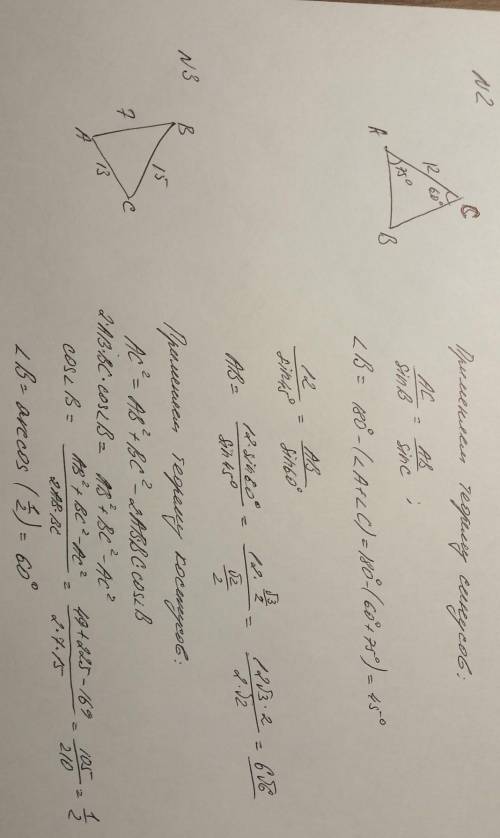 N2
A
12
75°
60°
C
B
Применяем теорему синусов:
AC/sinB = AB/sinC ;
∠B = 180° - (∠A+∠C) = 180° - (60°+75°) = 45°
12/sin45° = AB/sin60°
AB = 12·sin60°/sin45° = (12·√3/2)/(√2/2) = 12√3·2/2·√2 = 6√6
N3
B
7
15
A
13
C
Применяем теорему косинусов:
AC² = AB² + BC² - 2ABBCcos∠B
2AB·BC·cos∠B = AB² + BC² - AC²
cos∠B = (AB² + BC² - AC²)/2AB·BC = (49+225-169)/2·7·15 = 105/210 = 1/2
∠B = arccos (1/2) = 60°